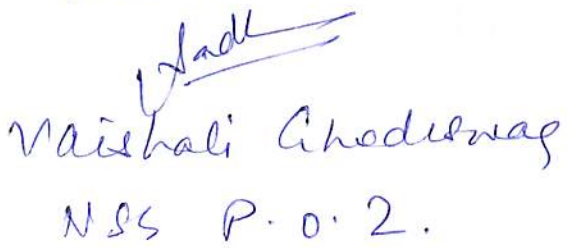 Vaishali Ghodeswar
NSS P.O.2.